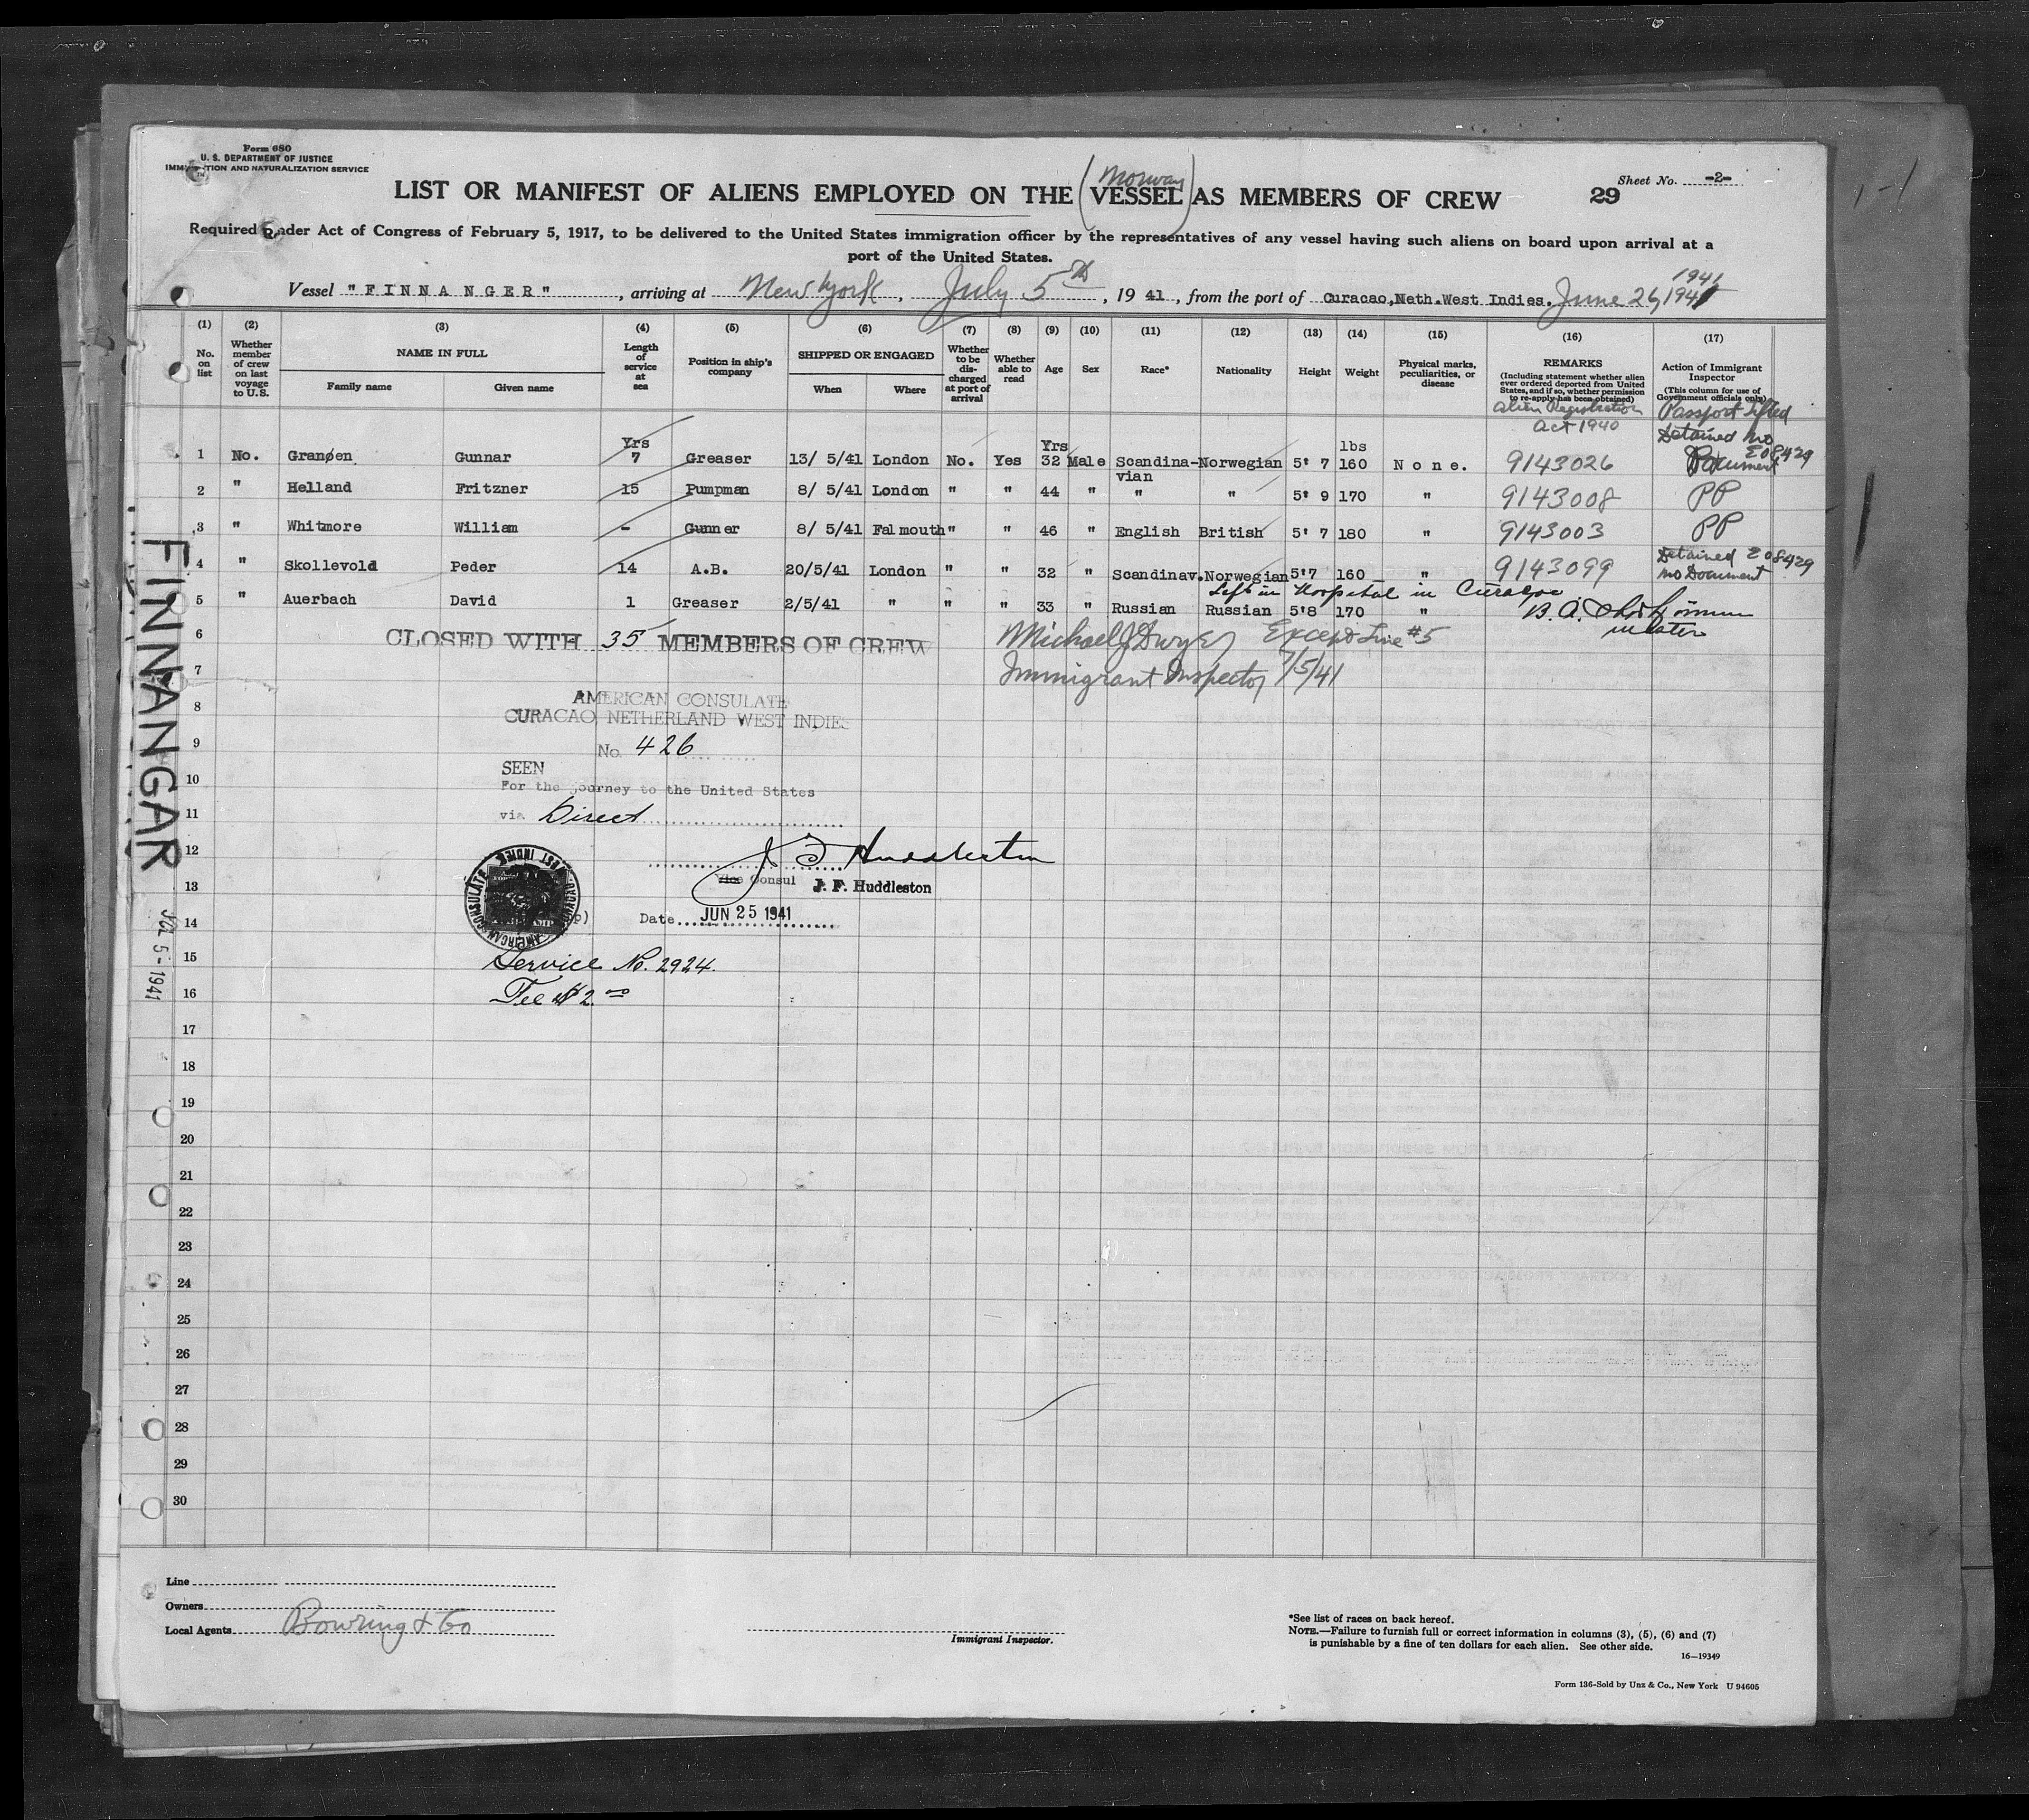 Form 680
U. S. DEPARTMENT OF JUSTICE
IMMIGRATION AND NATURALIZATION SERVICE
Sheet No. -2-
29
Norway
LIST OR MANIFEST OF ALIENS EMPLOYED ON THE (VESSEL) AS MEMBERS OF CREW
Required under Act of Congress of February 5, 1917, to be delivered to the United States immigration officer by the representatives of any vessel having such aliens on board upon arrival at a
port of the United States.
1941
Vessel "FINNANGER", arriving at New York, July 5th, 1941, from the port of Curacao,Neth.West Indies. June 26, 1941
(1) (2) (3) (4) (5) (6) (7) (8) (9) (10) (11) (12) (13) (14) (15) (16) (17)
No. on list
Whether member of crew on last voyage to U.S.
NAME IN FULL
Family name Given name
Length of service at sea
Position in ship's company
SHIPPED OR ENGAGED
When Where
Whether to be discharged at port of arrival
Whether able to read
Age
Sex
Race*
Nationality
Height
Weight
Physical marks, peculiarities, or disease
REMARKS
(Including statement whether alien ever ordered deported from United States, and if so, whether permission to re-apply has been obtained)
Alien Registration Act 1940
Action of Immigrant Inspector
(This column for use of Government officials only)
Passport lifted
Yrs Yrs lbs Detained No
1 No. Granøen Gunnar 7 Greaser 13/ 5/41 London No. Yes 32 Male Scandina-vian Norwegian 5' 7 160 None. 9143026 Document E08429
2 " Helland Fritzner 15 Pumpman 8/ 5/41 London " " 44 " " " 5' 9 170 " 9143008 PP
3 " Whitmore William - Gunner 8/ 5/41 Falmouth " " 46 " English British 5' 7 180 " 9143003 PP
4 " Skollevold Peder 14 A.B. 20/5/41 London " " 32 " Scandinav. Norwegian 5'7 160 " 9143099 Detained E08429 No Document
Left in Hospital in Curaçao
5 " Auerbach David 1 Greaser 2/5/41 " " " 33 " Russian Russian 5'8 170 " B. A.
master
6 CLOSED WITH 35 MEMBERS OF CREW Michael J Dwyer Except Line #5
7 Immigrant Inspector 7/5/41
8 AMERICAN CONSULATE
CURACAO NETHERLAND WEST INDIES
9 No. 426
SEEN
10 For the journey to the United States
11 via Direct
12 J F Huddleston
13 Vice Consul J. F. Huddleston
AMERICAN CONSULATE
14 Date JUN 25 1941
15 Service No. 2924.
16 Fee $2.00
17
18
19
20
21
22
23
24
25
26
27
28
29
30
FINNANGAR
JUL 5 - 1941
Line
Owners
Local Agents Bowring & Co
Immigrant Inspector.
*See list of races on back hereof.
NOTE.—Failure to furnish full or correct information in columns (3), (5), (6) and (7)
is punishable by a fine of ten dollars for each alien. See other side.
16—19349
Form 136-Sold by Unz & Co., New York U 94605